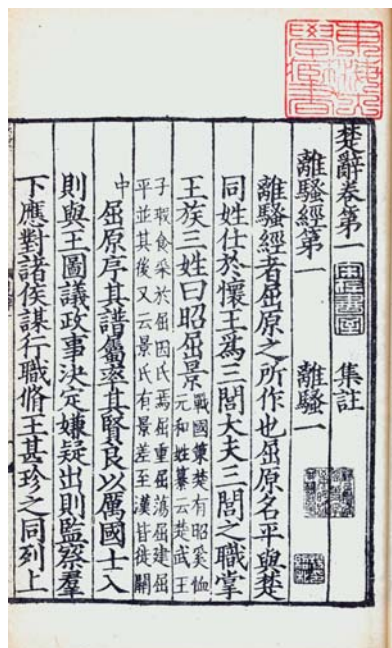 楚辭卷第一 集註
離騷經第一 離騷一
離騷經者屈原之所作也屈原名平與楚
同姓仕於懷王爲三閭大夫三閭之職掌
王族三姓曰昭屈景戰國策楚有昭奚恤
元和姓纂云楚武王
子瑕食采於屈因氏焉屈重屈蕩屈建屈
平並其後又云景氏有景差至漢皆徙關
中屈原序其譜屬率其賢良以厲國士入
則與王圖議政事決定嫌疑出則監察羣
下應對諸侯謀行職脩王甚珍之同列上